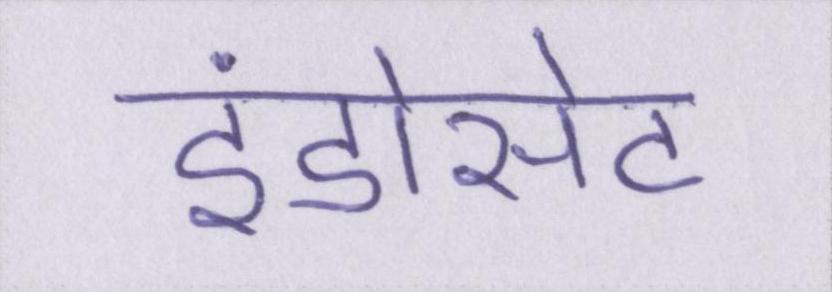 इंडोसेट